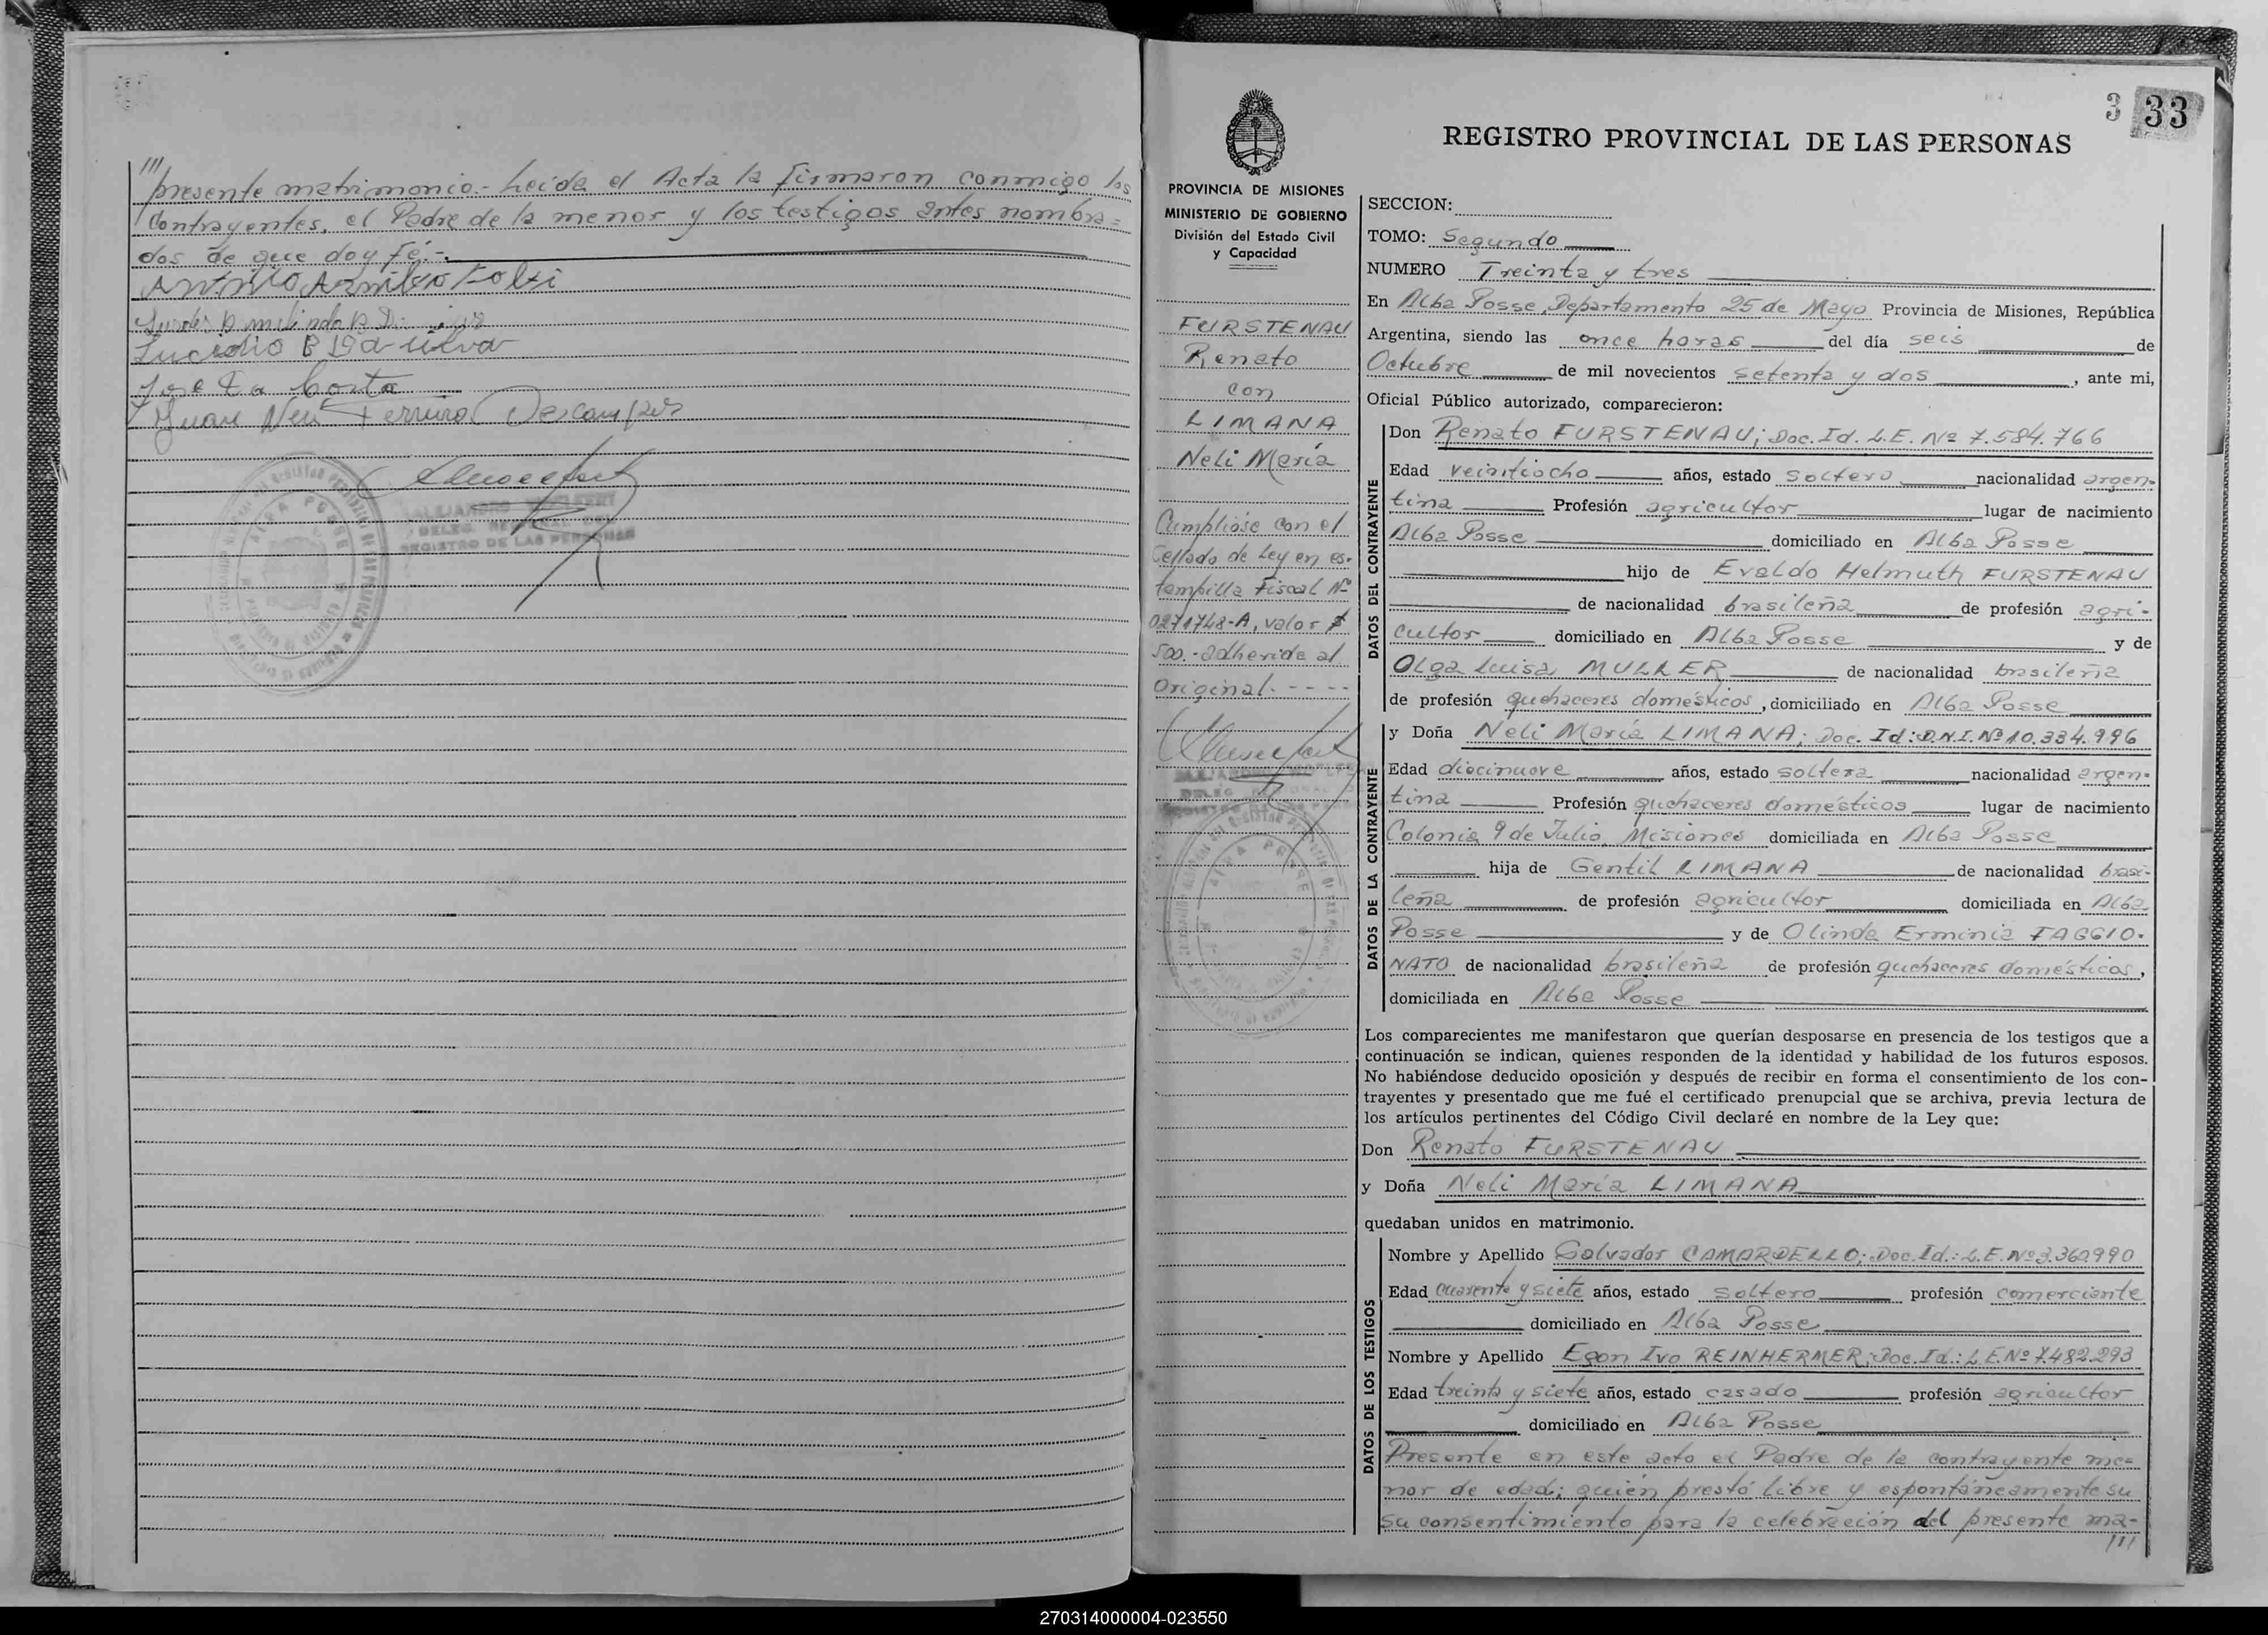 ///
presente matrimonio.- Leida el Acta la firmaron conmigo los
contrayentes, el Padre de la menor y los testigos antes nombra=
dos de que doy fé.-
Antonio
Lucidio B
Jose Da Costa
Juan Ferreira Descampes
ALBA POSSE
ALEJANDRO
DELEG.
REGISTRO DE LAS PERSONAS
3 33
REGISTRO PROVINCIAL DE LAS PERSONAS
PROVINCIA DE MISIONES
MINISTERIO DE GOBIERNO
División del Estado Civil
y Capacidad
FURSTENAU
Renato
con
LIMANA
Neli María
Cumplióse con el
Sellado de Ley en es-
tampilla Fiscal Nº
0271748-A, valor $
500.- adherida al
Original. - - - -
DELEG. REGIONAL
ALBA POSSE
SECCION:
TOMO: Segundo
NUMERO Treinta y tres
En Alba Posse, Departamento 25 de Mayo Provincia de Misiones, República
Argentina, siendo las once horas del día seis de
Octubre de mil novecientos setenta y dos, ante mi,
Oficial Público autorizado, comparecieron:
DATOS DEL CONTRAYENTE
Don Renato FURSTENAU; Doc. Id. L.E. Nº 7.584.766
Edad veintiocho años, estado soltero nacionalidad argen-
tina Profesión agricultor lugar de nacimiento
Alba Posse domiciliado en Alba Posse
hijo de Evaldo Helmuth FURSTENAU
de nacionalidad brasileña de profesión agri-
cultor domiciliado en Alba Posse y de
Olga Luisa MULLER de nacionalidad brasileña
de profesión quehaceres domésticos, domiciliado en Alba Posse
DATOS DE LA CONTRAYENTE
y Doña Neli María LIMANA; Doc. Id: D.N.I. Nº 10.334.996
Edad diecinueve años, estado soltera nacionalidad argen-
tina Profesión quehaceres domésticos lugar de nacimiento
Colonia 9 de Julio, Misiones domiciliada en Alba Posse
hija de Gentil LIMANA de nacionalidad brasi-
leña de profesión agricultor domiciliada en Alba
Posse y de Olinda Erminia TAGGIO-
NATO de nacionalidad brasileña de profesión quehaceres domésticos,
domiciliada en Alba Posse
Los comparecientes me manifestaron que querían desposarse en presencia de los testigos que a
continuación se indican, quienes responden de la identidad y habilidad de los futuros esposos.
No habiéndose deducido oposición y después de recibir en forma el consentimiento de los con-
trayentes y presentado que me fué el certificado prenupcial que se archiva, previa lectura de
los artículos pertinentes del Código Civil declaré en nombre de la Ley que:
Don Renato FURSTENAU
y Doña Neli María LIMANA
quedaban unidos en matrimonio.
DATOS DE LOS TESTIGOS
Nombre y Apellido Salvador CAMARDELLO; Doc. Id.: L.E. Nº 3.360.990
Edad cuarenta y siete años, estado soltero profesión comerciante
domiciliado en Alba Posse
Nombre y Apellido Egon Ivo REINHERMER; Doc. Id.: L.E. Nº 7.482.293
Edad treinta y siete años, estado casado profesión agricultor
domiciliado en Alba Posse
Presente en este acto el Padre de la contrayente me=
nor de edad; quién prestó libre y espontáneamente su
su consentimiento para la celebración del presente ma-
///
270314000004-023550